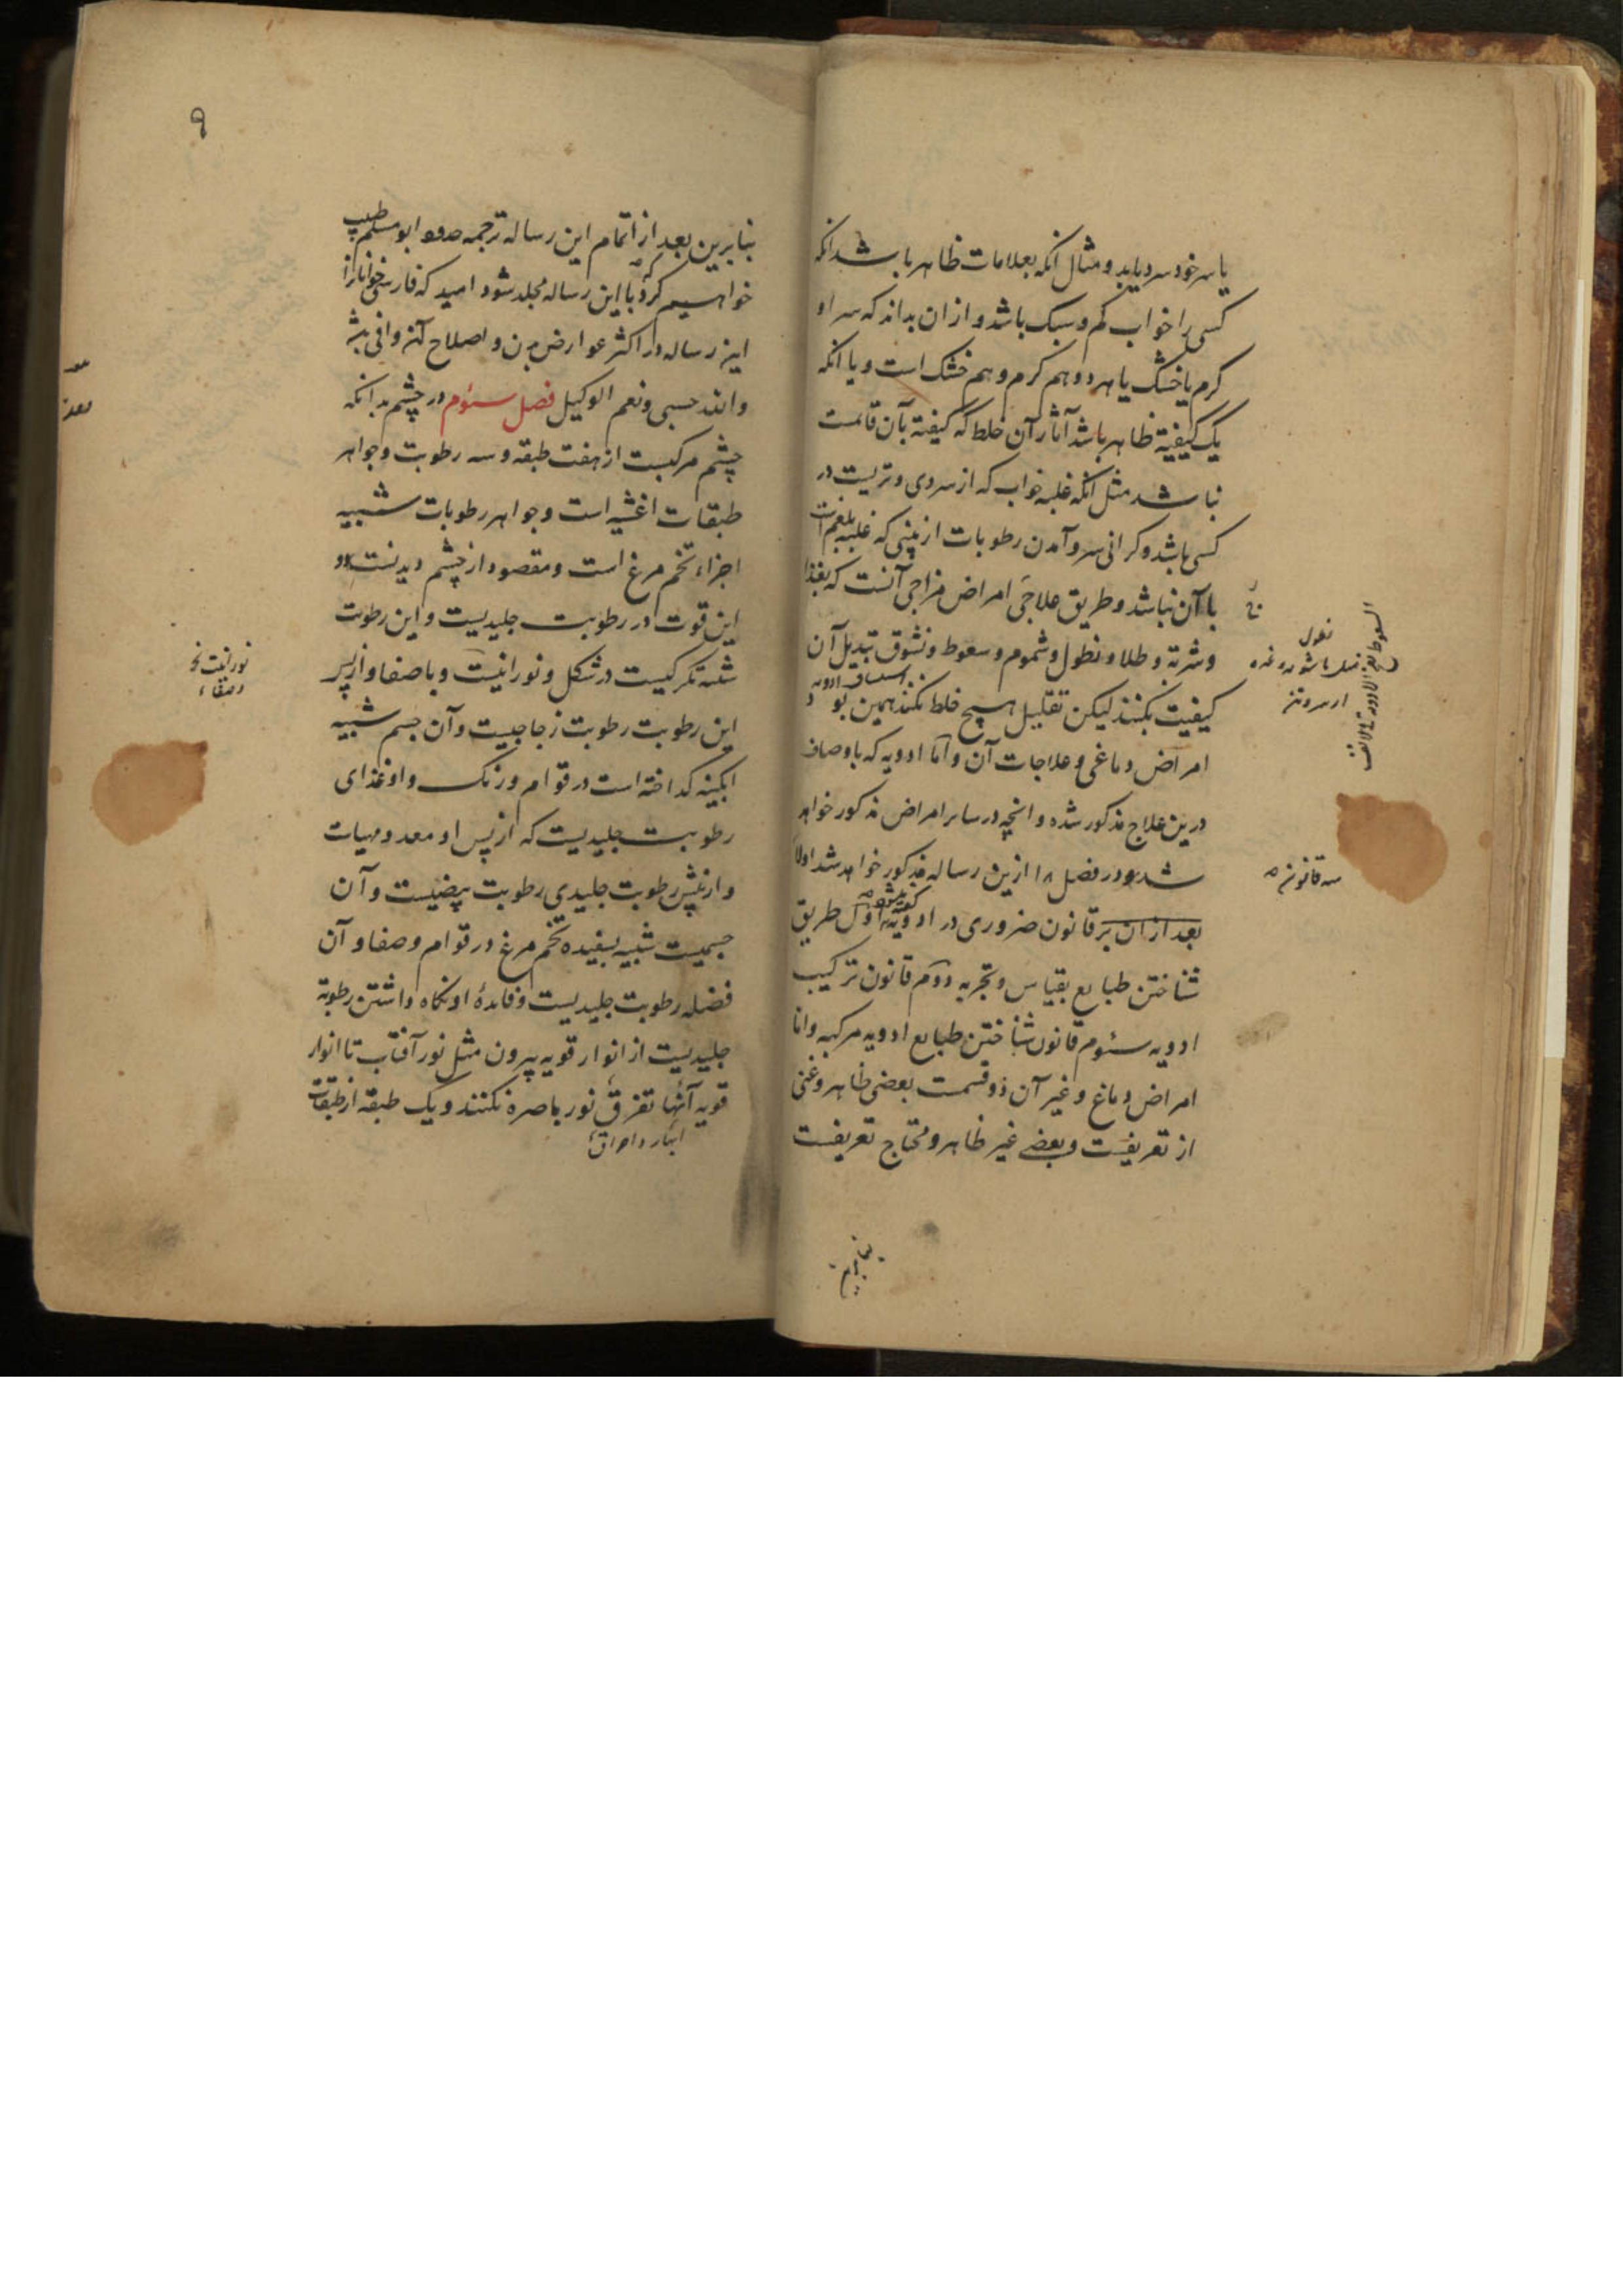 یا سر خود سرد یابد و مثال انکه بعلامات ظاهر باشد انکه
کسی را خواب کم و سبک باشد و از ان بداند که سر او
کرم یا خشک یا هر دو هم کرم و هم خشک است و یا انکه
یک کیفیة ظاهر باشد آثار آن خلط که کیفیة بآن قائمست
نباشد مثل انکه غلبه خواب که از سردی و تریست در
کسی باشد و کرانی سر و آمدن رطوبات از بینی که غلبه بلغم است
با آن نباشد و طریق علاجی امراض مزاجی آنست که بغذا
و شربة و طلا و نطول و شموم و سعوط و نشوق تبدیل آن
کیفیت بکنند لیکن تقلیل هیچ خلط نکنند همین بود
امراض دماغی و علاجات آن و اما ادویه که باوصاف
درین علاج مذکور شده و انچه در سایر امراض مذکور خواهد
شد در فصل ۱۸ ازین رساله مذکور خواهد شد اولا
بعد از ان قانون ضروری در ادویه اول طریق
شناختن طبایع بقیاس و تجربه دوم قانون ترکیب
ادویه سئوم قانون شناختن طبایع ادویه مرکبه و اما
امراض دماغ و غیر آن دو قسمت بعضی ظاهر و غنی
از تعریفست و بعضے غیر ظاهر و محتاج تعریفست
سه قانون
بنابرین
۹
بنابرین بعد از اتمام این رساله ترجمه ابو مسلم طبیب
خواهیم کرد که با این رساله مجلد شود امید که فارسی خوانانرا
این رساله در اکثر عوارض بدن و اصلاح آن وافی باشد
والله حسبی و نعم الوکیل فصل سئوم در چشم بدانکه
چشم مرکبست از هفت طبقه و سه رطوبت و جواهر
طبقات اغشیه است و جواهر رطوبات شبیه
اجزاء تخم مرغ است و مقصود از چشم دیدنست و
این قوت در رطوبت جلیدیست و این رطوبت
تکرکیست در شکل و نورانیت و با صفا و از پس
این رطوبت رطوبت زجاجیست و آن جسم شبیه
ابکینه کداخته است در قوام و رنک و او غذای
رطوبت جلیدیست که از پس او معد و مهیات
و از پیش رطوبت جلیدی رطوبت بیضیست و آن
جسمیست شبیه بسفیده تخم مرغ در قوام و صفا و آن
فضله رطوبت جلیدیست و فایدۀ او نکاه داشتن رطوبة
جلیدیست از انوار قویه بیرون مثل نور آفتاب تا انوار
قویه آنها تفرق نور باصره نکنند و یک طبقه از طبقات
نورانیت
و صفاء